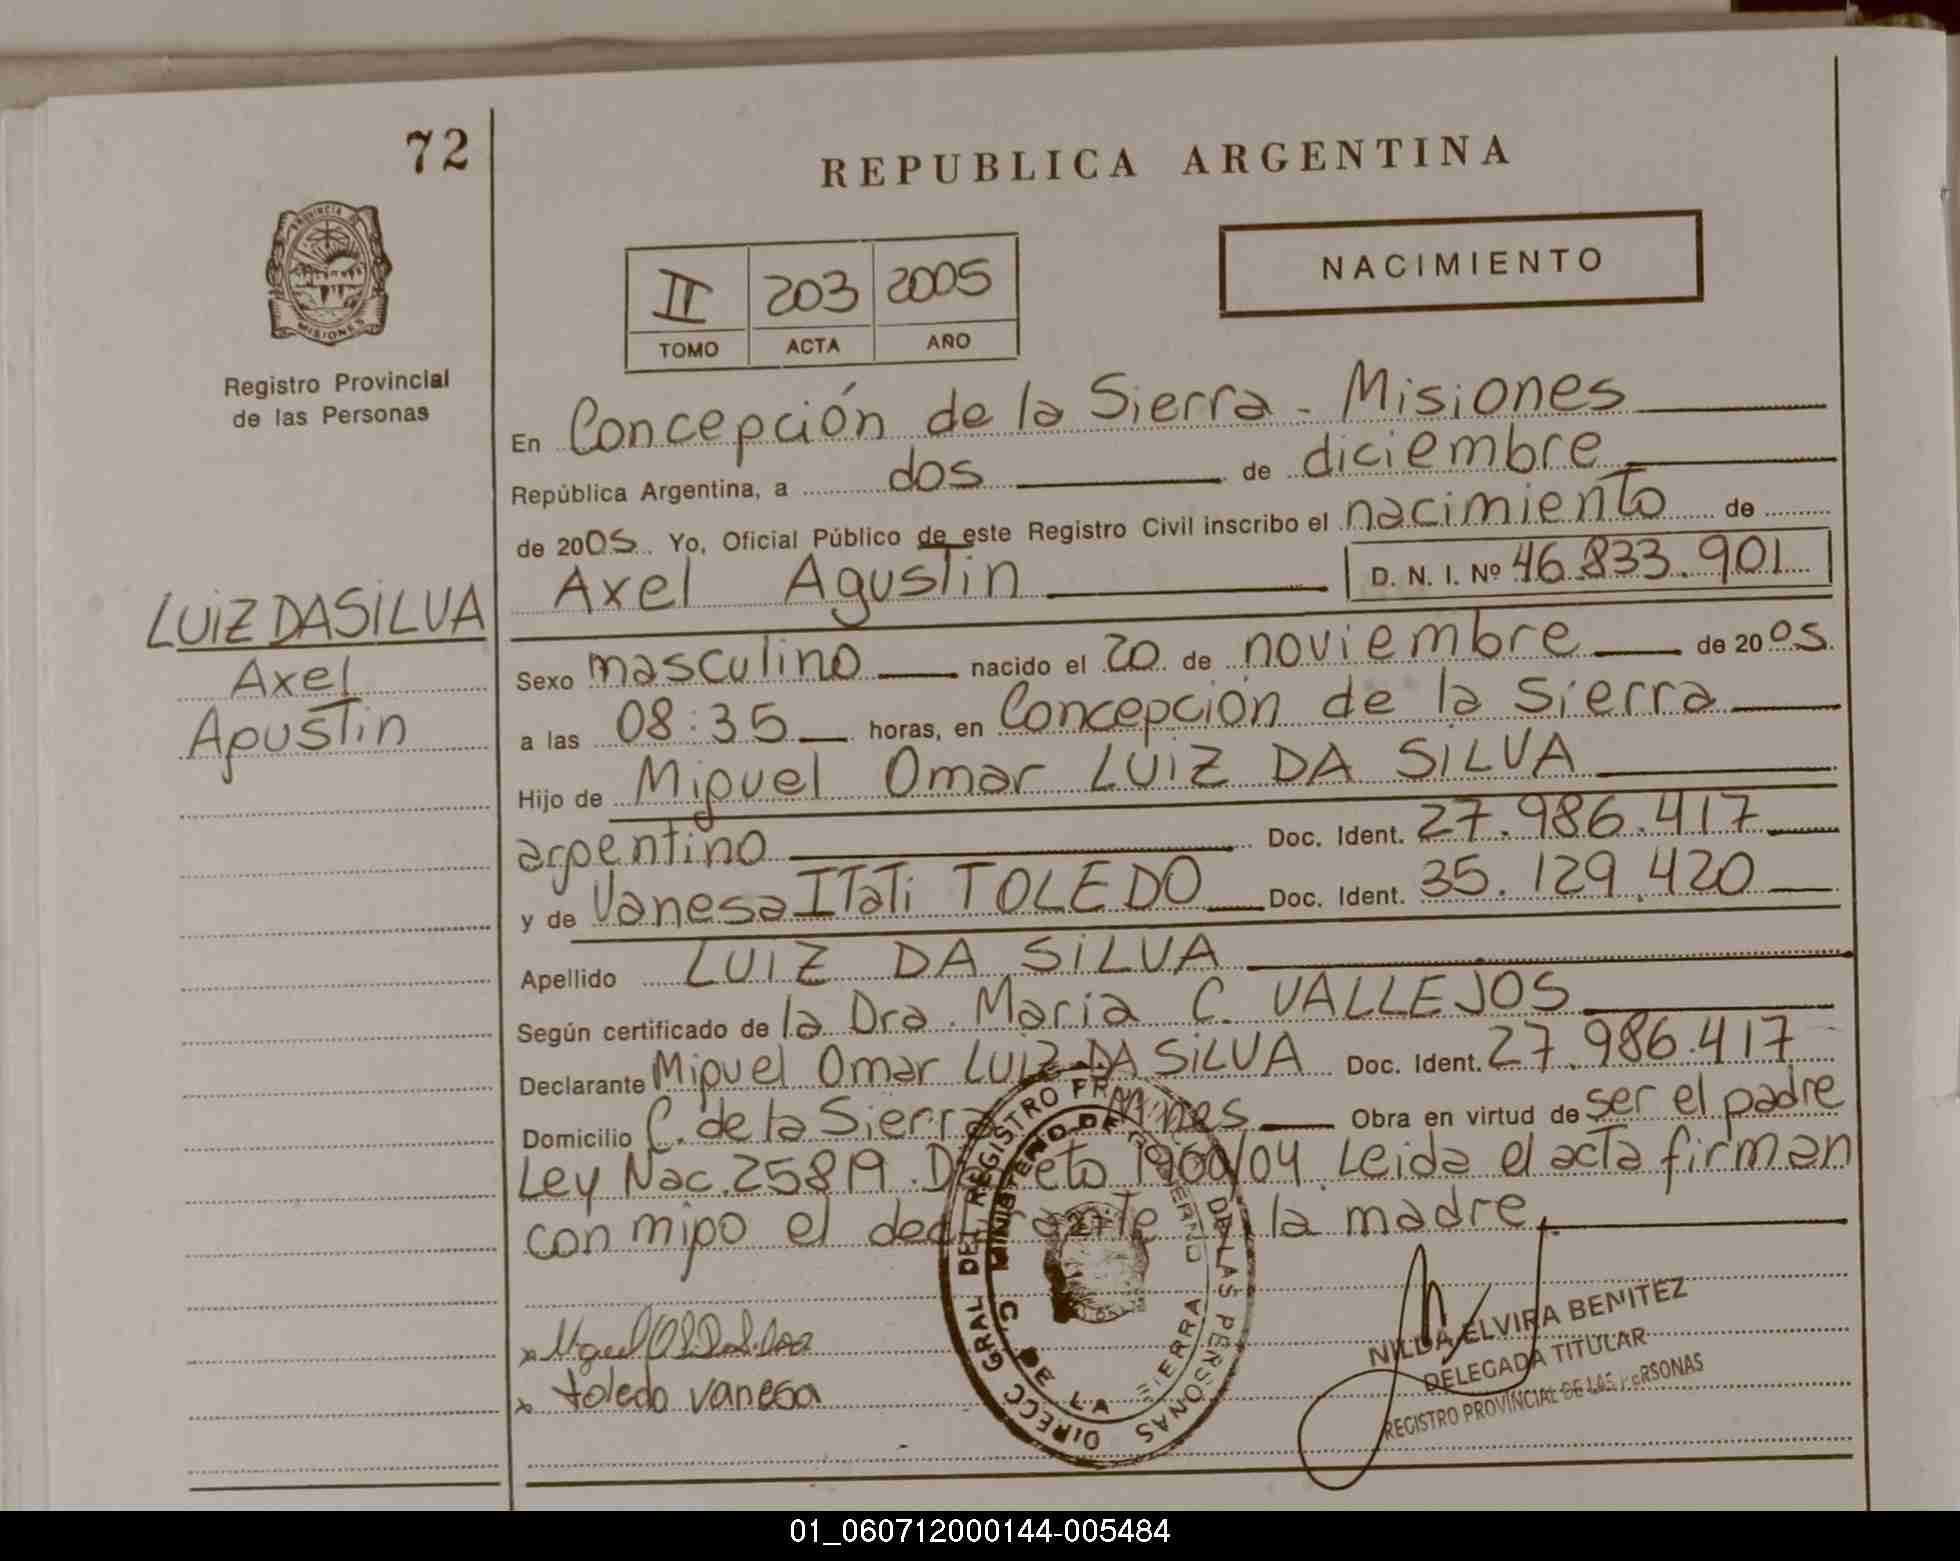 72
REPUBLICA ARGENTINA
PROVINCIA DE
MISIONES
Registro Provincial
de las Personas
II 203 2005
TOMO ACTA AÑO
NACIMIENTO
En Concepción de la Sierra - Misiones
República Argentina, a dos de diciembre
de 2005 Yo, Oficial Público de este Registro Civil inscribo el nacimiento de
Axel Agustin D. N. I. Nº 46.833.901
LUiZ DASiLVA
Axel
Agustin
Sexo masculino nacido el 20 de noviembre de 2005.
a las 08:35 horas, en Concepción de la Sierra
Hijo de Miguel Omar LUiZ DA SiLVA
argentino Doc. Ident. 27.986.417
y de Vanesa ITaTi TOLEDO Doc. Ident. 35.129.420
Apellido LUiZ DA SiLVA
Según certificado de la Dra. Maria C. VALLEJOS
Declarante Miguel Omar LUiZ DA SiLVA Doc. Ident. 27.986.417
Domicilio C. de la Sierra Mnes Obra en virtud de ser el padre
Ley Nac. 25819. Decreto 1900/04 Leida el acta firman
con migo el declarante la madre.
toledo vanesa
DIRECC GRAL DEL REGISTRO DE LAS PERSONAS
MINISTERIO DE GOBIERNO
C. DE LA SIERRA
NILDA ELVIRA BENITEZ
DELEGADA TITULAR
REGISTRO PROVINCIAL DE LAS PERSONAS
01_060712000144-005484